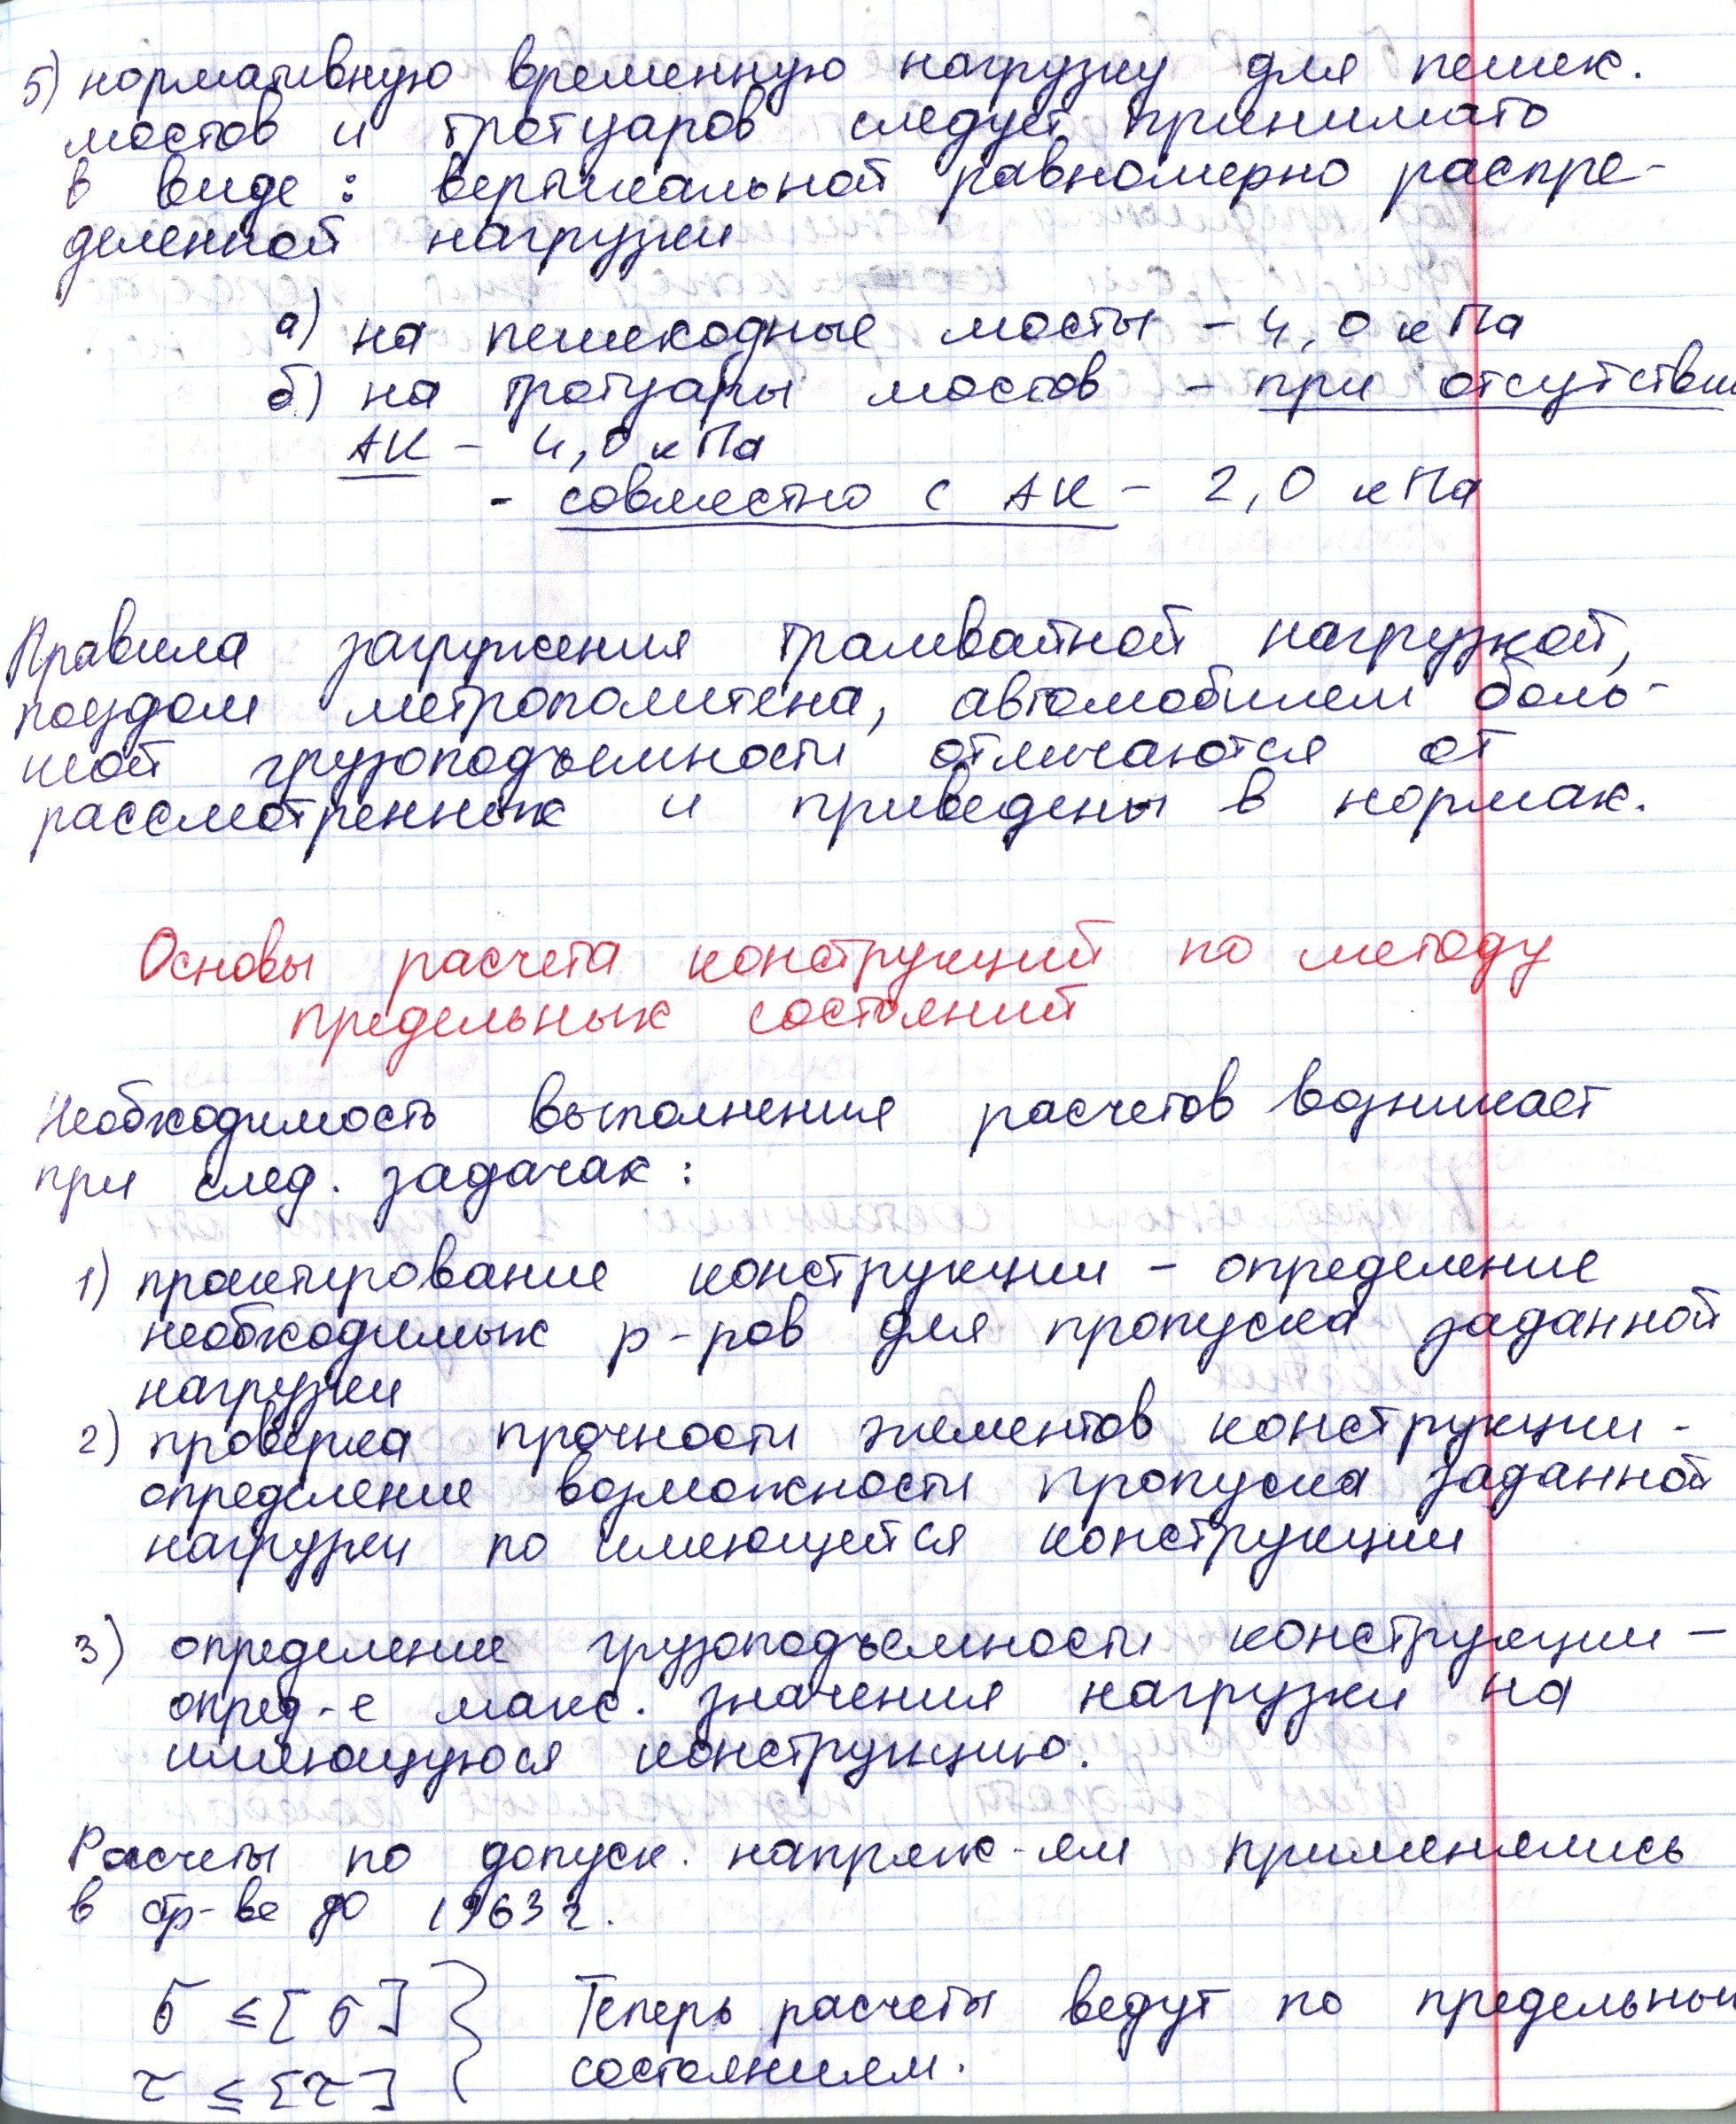 5) нормативную временную нагрузку для пешех.
мостов и тротуаров следует принимать
в виде: вертикальной равномерно распре-
деленной нагрузки
а) на пешеходные мосты - 4,0 кПа
б) на тротуары мостов - при отсутствии
АК - 4,0 кПа
- совместно с АК - 2,0 кПа
Правила загружения трамвайной нагрузкой,
поездом метрополитена, автомобилем боль-
шой грузоподъемности отличаются от
рассмотренных и приведены в нормах.
Основы расчета конструкций по методу
предельных состояний
Необходимость выполнения расчетов возникает
при след. задачах:
1) проектирование конструкции - определение
необходимых р-ров для пропуска заданной
нагрузки
2) проверка прочности элементов конструкции -
определение возможности пропуска заданной
нагрузки по имеющейся конструкции
3) определение грузоподъемности конструкции -
опред-е макс. значения нагрузки на
имеющуюся конструкцию.
Расчеты по допуск. напряж-ям применялись
в стр-ве до 1963 г.
σ ≤ [σ] } Теперь расчеты ведут по предельным
τ ≤ [τ] состояниям.